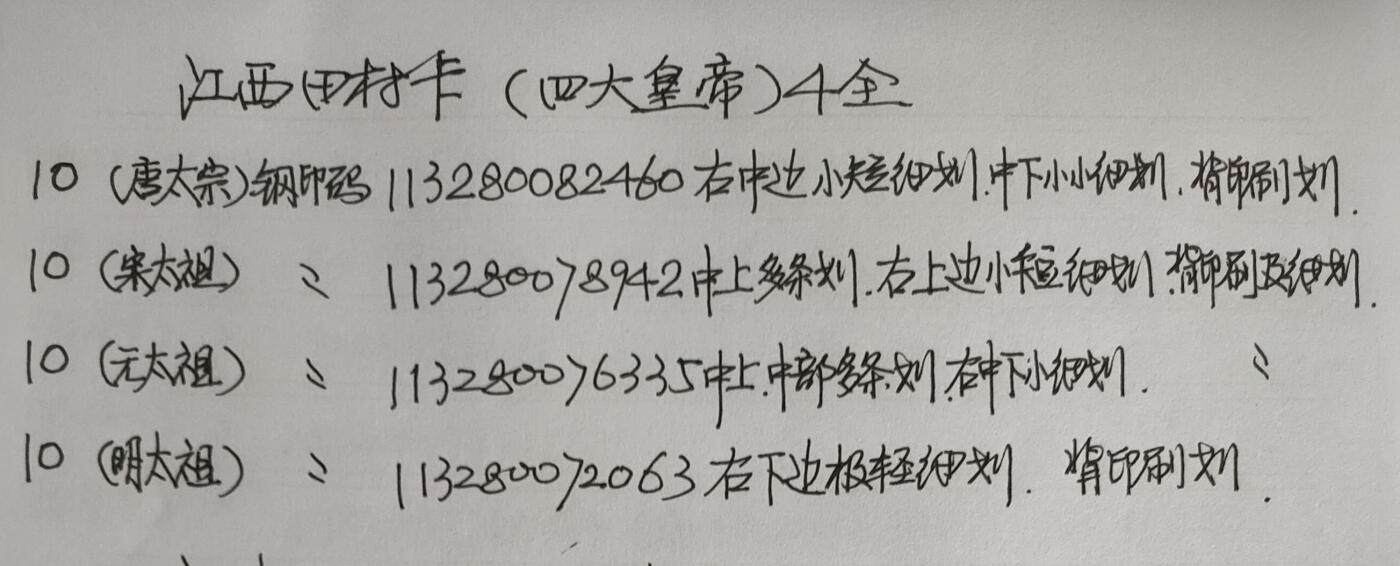 江西田村卡（四大皇帝）4全
10（唐太宗）钢印码 113280082460 右中边小短细划.中下小小细划.背印刷划.
10（宋太祖） 〃 113280078942 中上多条划.右上边小短细划.背印刷及细划.
10（元太祖） 〃 113280076335 中上.中部多条划.右中下小细划. 〃
10（明太祖） 〃 113280072063 右下边极轻细划. 背印刷划.